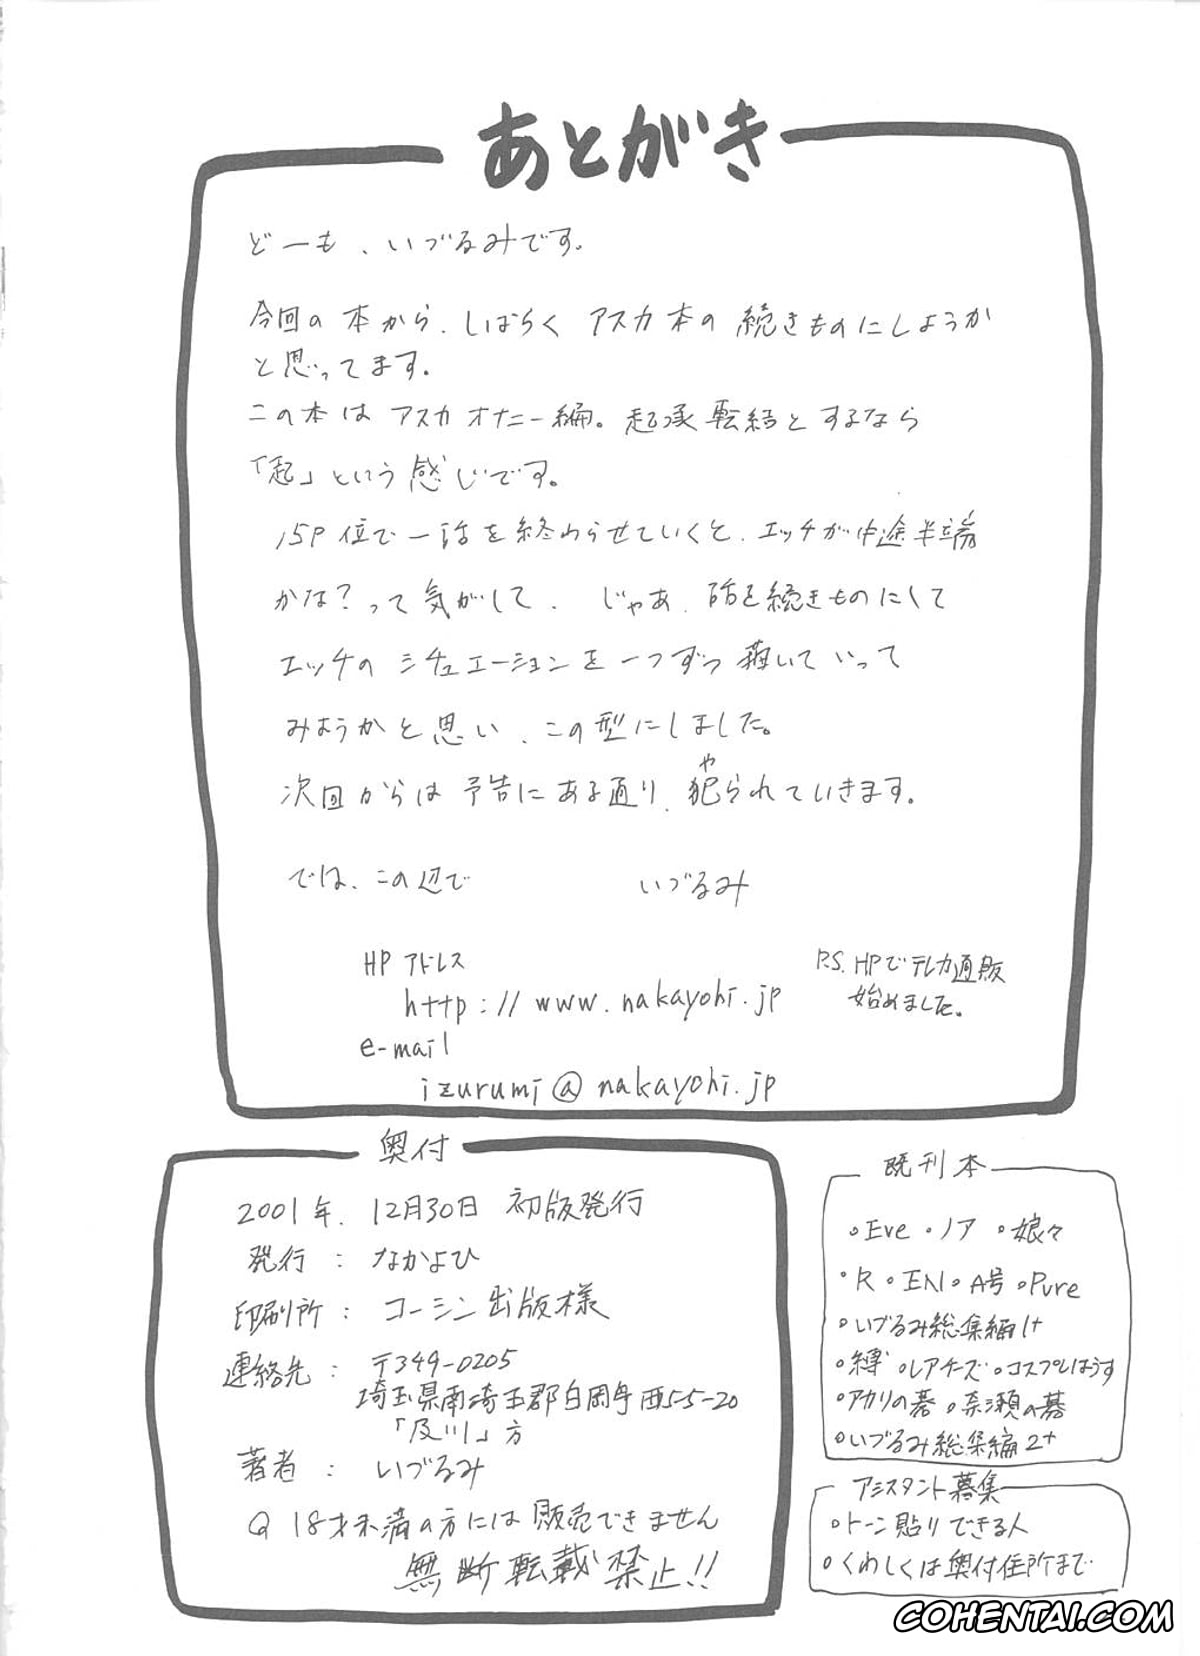 あとがき
どーも、いづるみです。
今回の本から、しばらく アスカ本の 続きものにしようか
と思ってます。
この本は アスカオナニー編。起承転結とするなら
「起」という感じです。
15P位で一話を終わらせていくと、エッチが中途半端
かな?って気がして、じゃあ、話を続きものにして
エッチの シチュエーションを一つずつ 描いていって
みようかと思い、この型にしました。
次回からは 予告にある通り、犯られていきます。
や
では、この辺で いづるみ
HP アドレス
http://www.nakayohi.jp
e-mail
izurumi@nakayohi.jp
P.S. HPでテレカ通販
始めました。
奥付
2001年.12月30日 初版発行
発行 : なかよひ
印刷所 : コーシン出版様
連絡先 : 〒349-0205
埼玉県南埼玉郡白岡町西5-5-20
「及川」方
著者 : いづるみ
18才未満の方には販売できません
無断転載禁止!!
既刊本
○Eve ○ノア ○娘々
○R ○EN ○A号 ○Pure
○いづるみ総集編1+
○縛 ○レアチーズ ○コスプレはうす
○アカリの碁 ○奈瀬の碁
○いづるみ総集編2+
アシスタント募集
○トーン貼りできる人
○くわしくは奥付住所まで
COHENTAI.COM